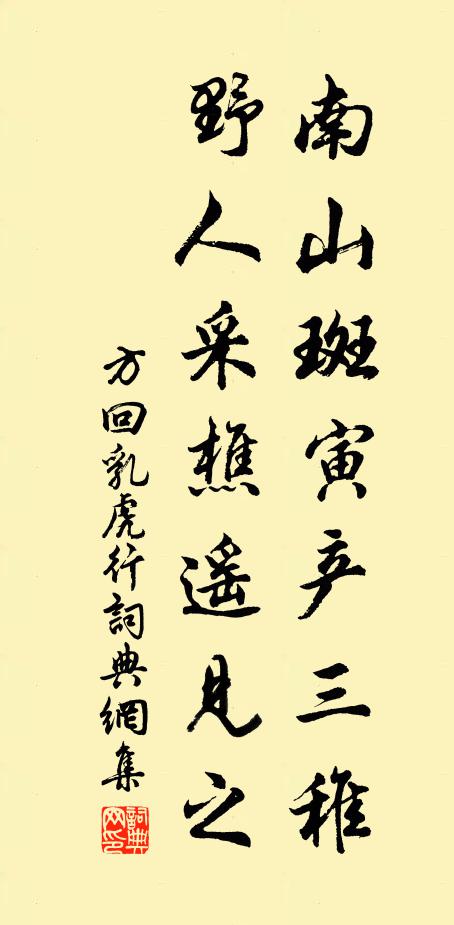 南山斑寅产三稚
野人采樵遥见之
方回乳虎行詞典網集
詞典网印